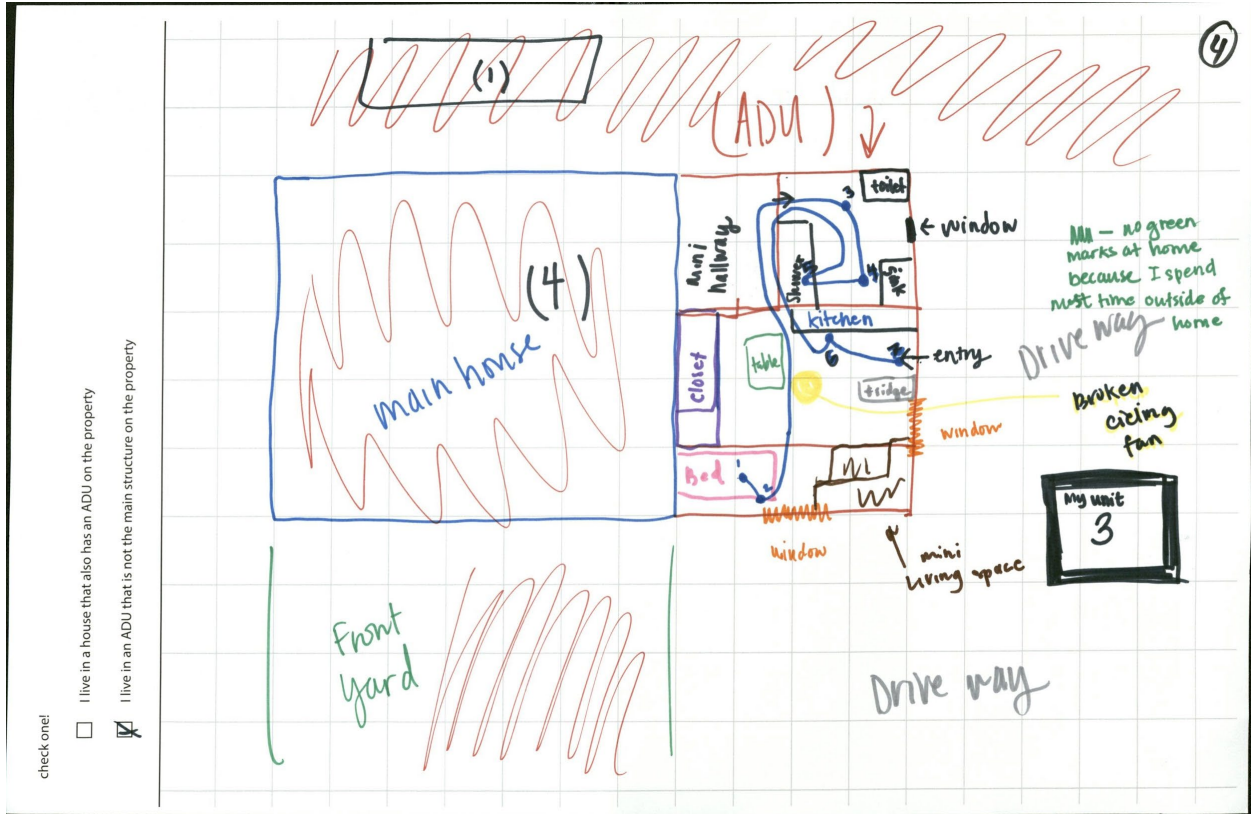 check one!
I live in a house that also has an ADU on the property
I live in an ADU that is not the main structure on the property
4
(1)
(ADU)
toilet
3
window
mini
hallway
shower
4
sink
(4)
main house
kitchen
6
7
entry
closet
table
fridge
window
Bed
1
2
window
mini
living space
— no green
marks at home
because I spend
most time outside of
home
Drive way
Broken
cieling
fan
My unit
3
Front
yard
Drive way